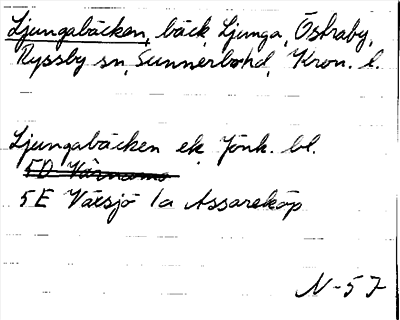 Ljungabäcken, bäck, Ljunga, Östraby,
Ryssby sn, Sunnerbo hd, Kron. l.
Ljungabäcken ek. Jönk. bl.
5D Värnamo
5E Växsjö 1a Assareköp
N-57